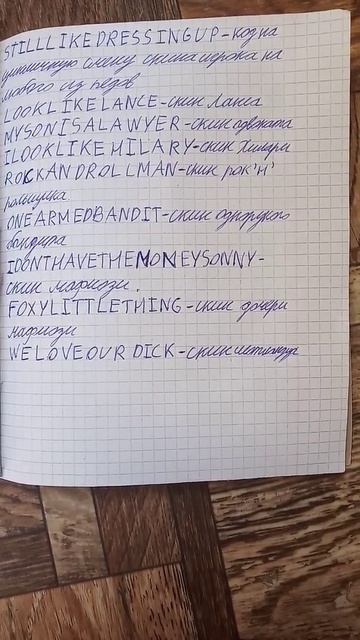 STILLLIKEDRESSINGUP-код на
цикличную смену скина игрока на
любого из педов
LOOKLIKELANCE-скин Ланса
MYSONISALAWYER-скин адвоката
ILOOKLIKEHILARY-скин Хилари
ROCKANDROLLMAN-скин рок'н'
рольщика
ONEARMEDBANDIT-скин однорукого
бандита
IDONTHAVETHEMONEYSONNY-
скин мафиози.
FOXYLITTLETHING-скин дочери
мафиози
WELOVEOURDICK-скин